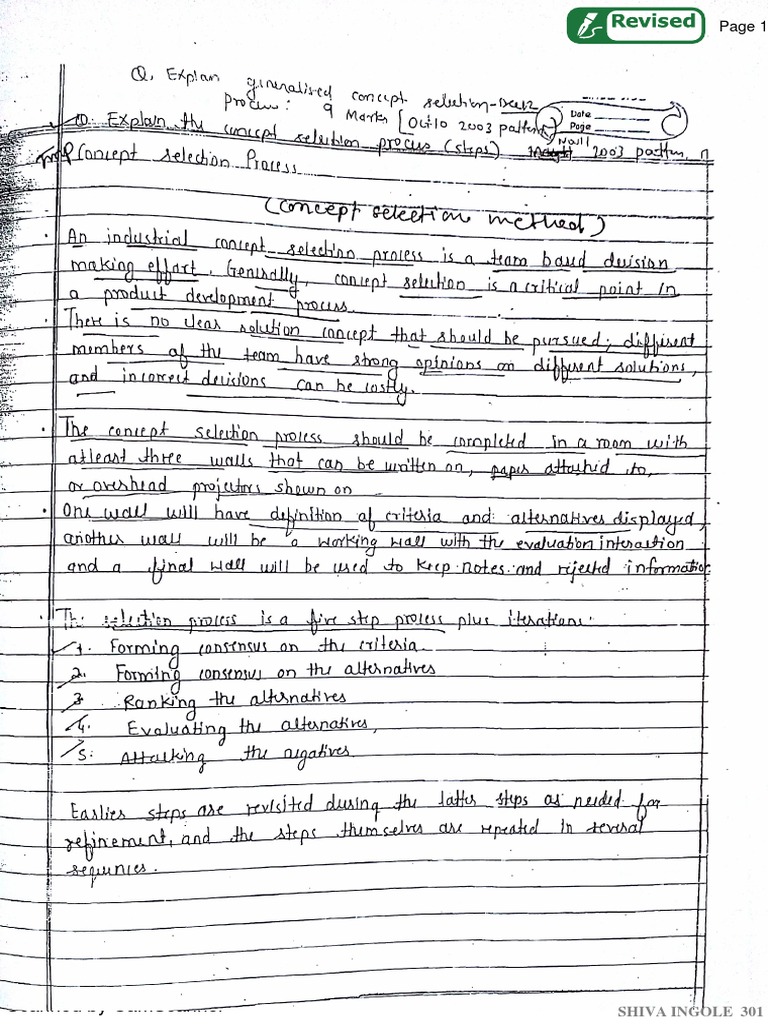 Revised
Page 1
Q. Explan generalised concept selection-Dec12
Process: 9 Marks [Oct10 2003 pattern]
Date
Page
Q. Explain the concept selection process (steps) 2003 pattern
Nov11
Imp Concept selection Process
(concept selection method)
· An industrial concept selection process is a team based decision
making effort. Generally, concept selection is a critical point in
a product development process.
· There is no clear solution concept that should be pursued; different
members of the team have strong opinions on different solutions,
and incorrect decisions can be costly.
· The concept selection process should be completed in a room with
atleast three walls that can be written on, paper attached to,
or overhead projectors shown on
· One wall will have definition of criteria and alternatives displayed,
another wall will be a working wall with the evaluation interaction
and a final wall will be used to keep notes and rejected information
· The selection process is a five step process plus iterations:
1. Forming consensus on the criteria
2. Forming consensus on the alternatives
3. Ranking the alternatives
4. Evaluating the alternatives,
5. Attacking the negatives
Earlies steps are revisited during the latter steps as needed for
refinement, and the steps themselves are repeated in several
sequences.
SHIVA INGOLE 301